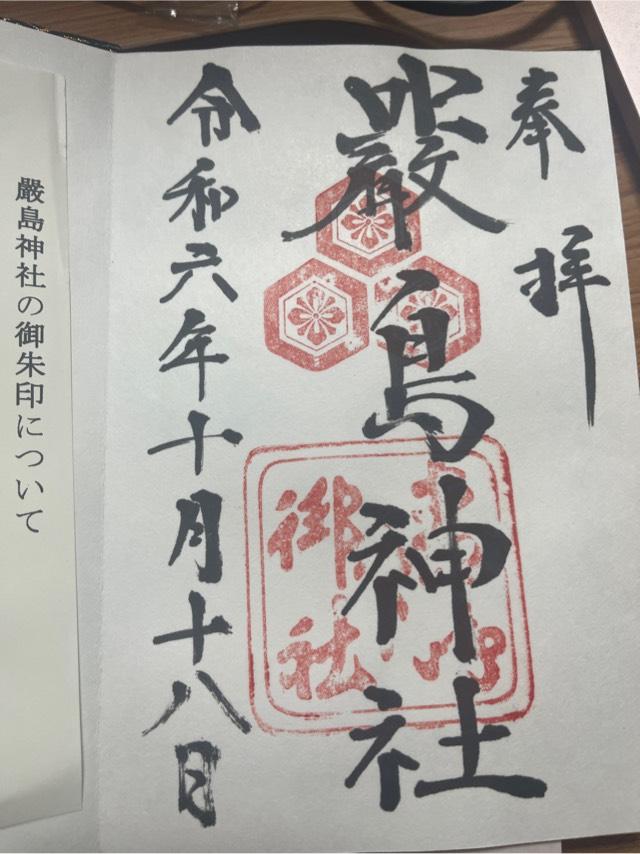 奉拝
嚴島神社
令和六年十月十八日
御社
嚴島神社の御朱印について